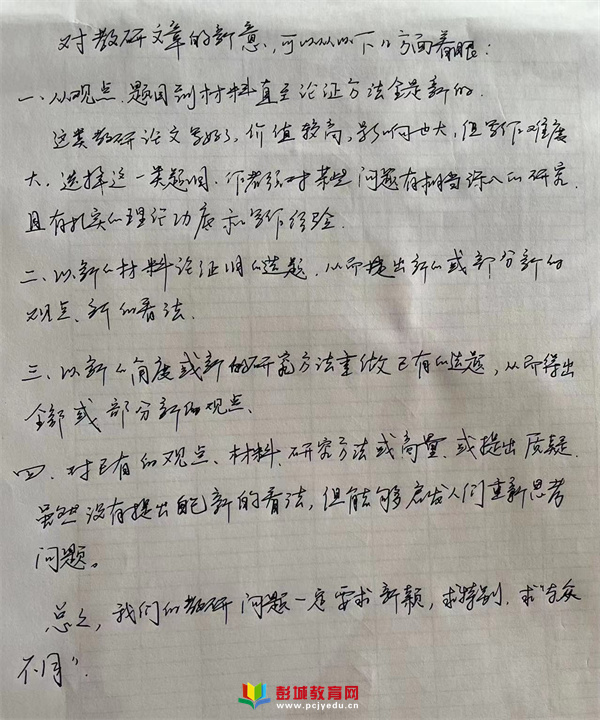 对教研文章的新意，可以从以下几方面着眼：
一、从观点、题目到材料直至论证方法全是新的.
这类教研论文写好了，价值较高，影响也大，但写作难度
大。选择这一类题目，作者须对某些问题有相当深入的研究，
且有扎实的理论功底和写作经验.
二、以新的材料论证旧的选题，从而提出新的或部分新的
观点、新的看法.
三、以新的角度或新的研究方法重做已有的选题，从而得出
全部或部分新的观点、
四、对已有的观点、材料、研究方法或商量、或提出质疑.
虽然没有提出自己新的看法，但能够启发人们重新思考
问题。
总之，我们的教研问题一定要求新颖，求特别，求"与众
不同".
彭城教育网
www.pcjyedu.cn